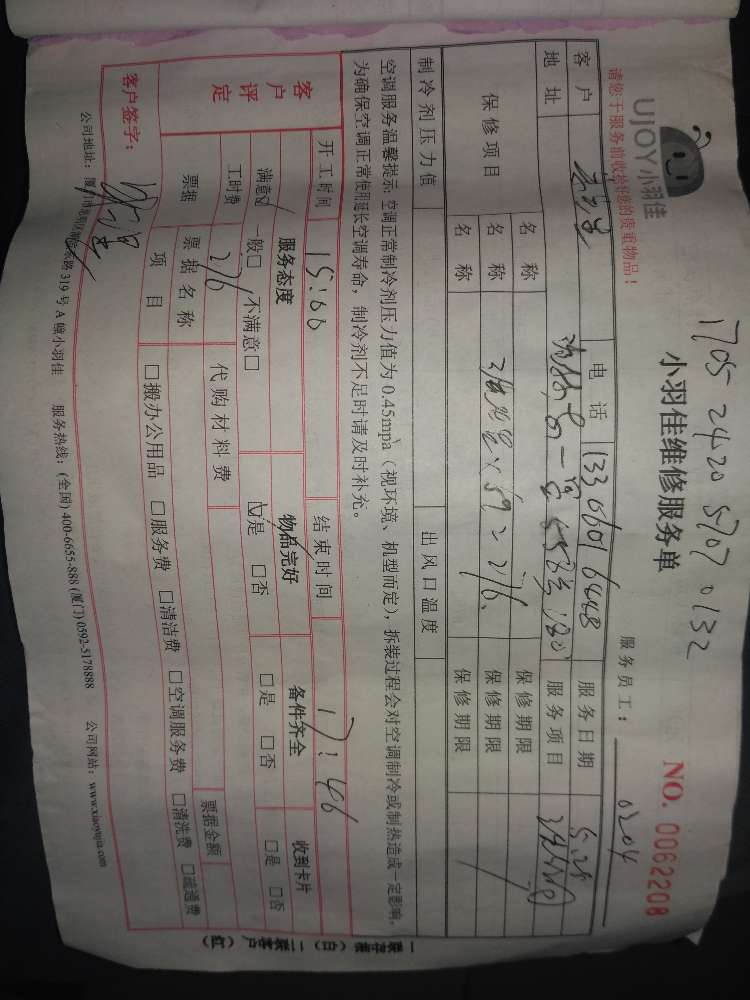 1705 2420 5707 0132
UJOY小羽佳
小羽佳维修服务单
NO. 0062208
请您于服务前收拾好您的贵重物品!
服务员工: 0204
客户 电话 133 6601 6448 服务日期 5.28
地址 服务项目
保修项目 名称 保修期限
名称 保修期限
名称 保修期限
制冷剂压力值 出风口温度
空调服务温馨提示: 空调正常制冷剂压力值为0.45mpa(视环境、机型而定),拆装过程会对空调制冷或制热造成一定影响,
为确保空调正常使用延长空调寿命,制冷剂不足时请及时补充。
开工时间 15:00 结束时间 17:46
客户评定 服务态度 物品完好 备件齐全 收到卡片
满意☑ 一般□ 不满意□ ☑是 □否 □是 □否 □是 □否
工时费 276 代购材料费 票据金额
票据 票据名称
项目 □搬办公用品 □服务费 □清洁费 □空调服务费 □清洗费 □疏通费
客户签字:
319号A幢小羽佳 服务热线:(全国)400-6655-888 (厦门)0592-5178888 公司网站:www.xiaoyujia.com
公司地址:
一联存根(白) 二联客户(红)